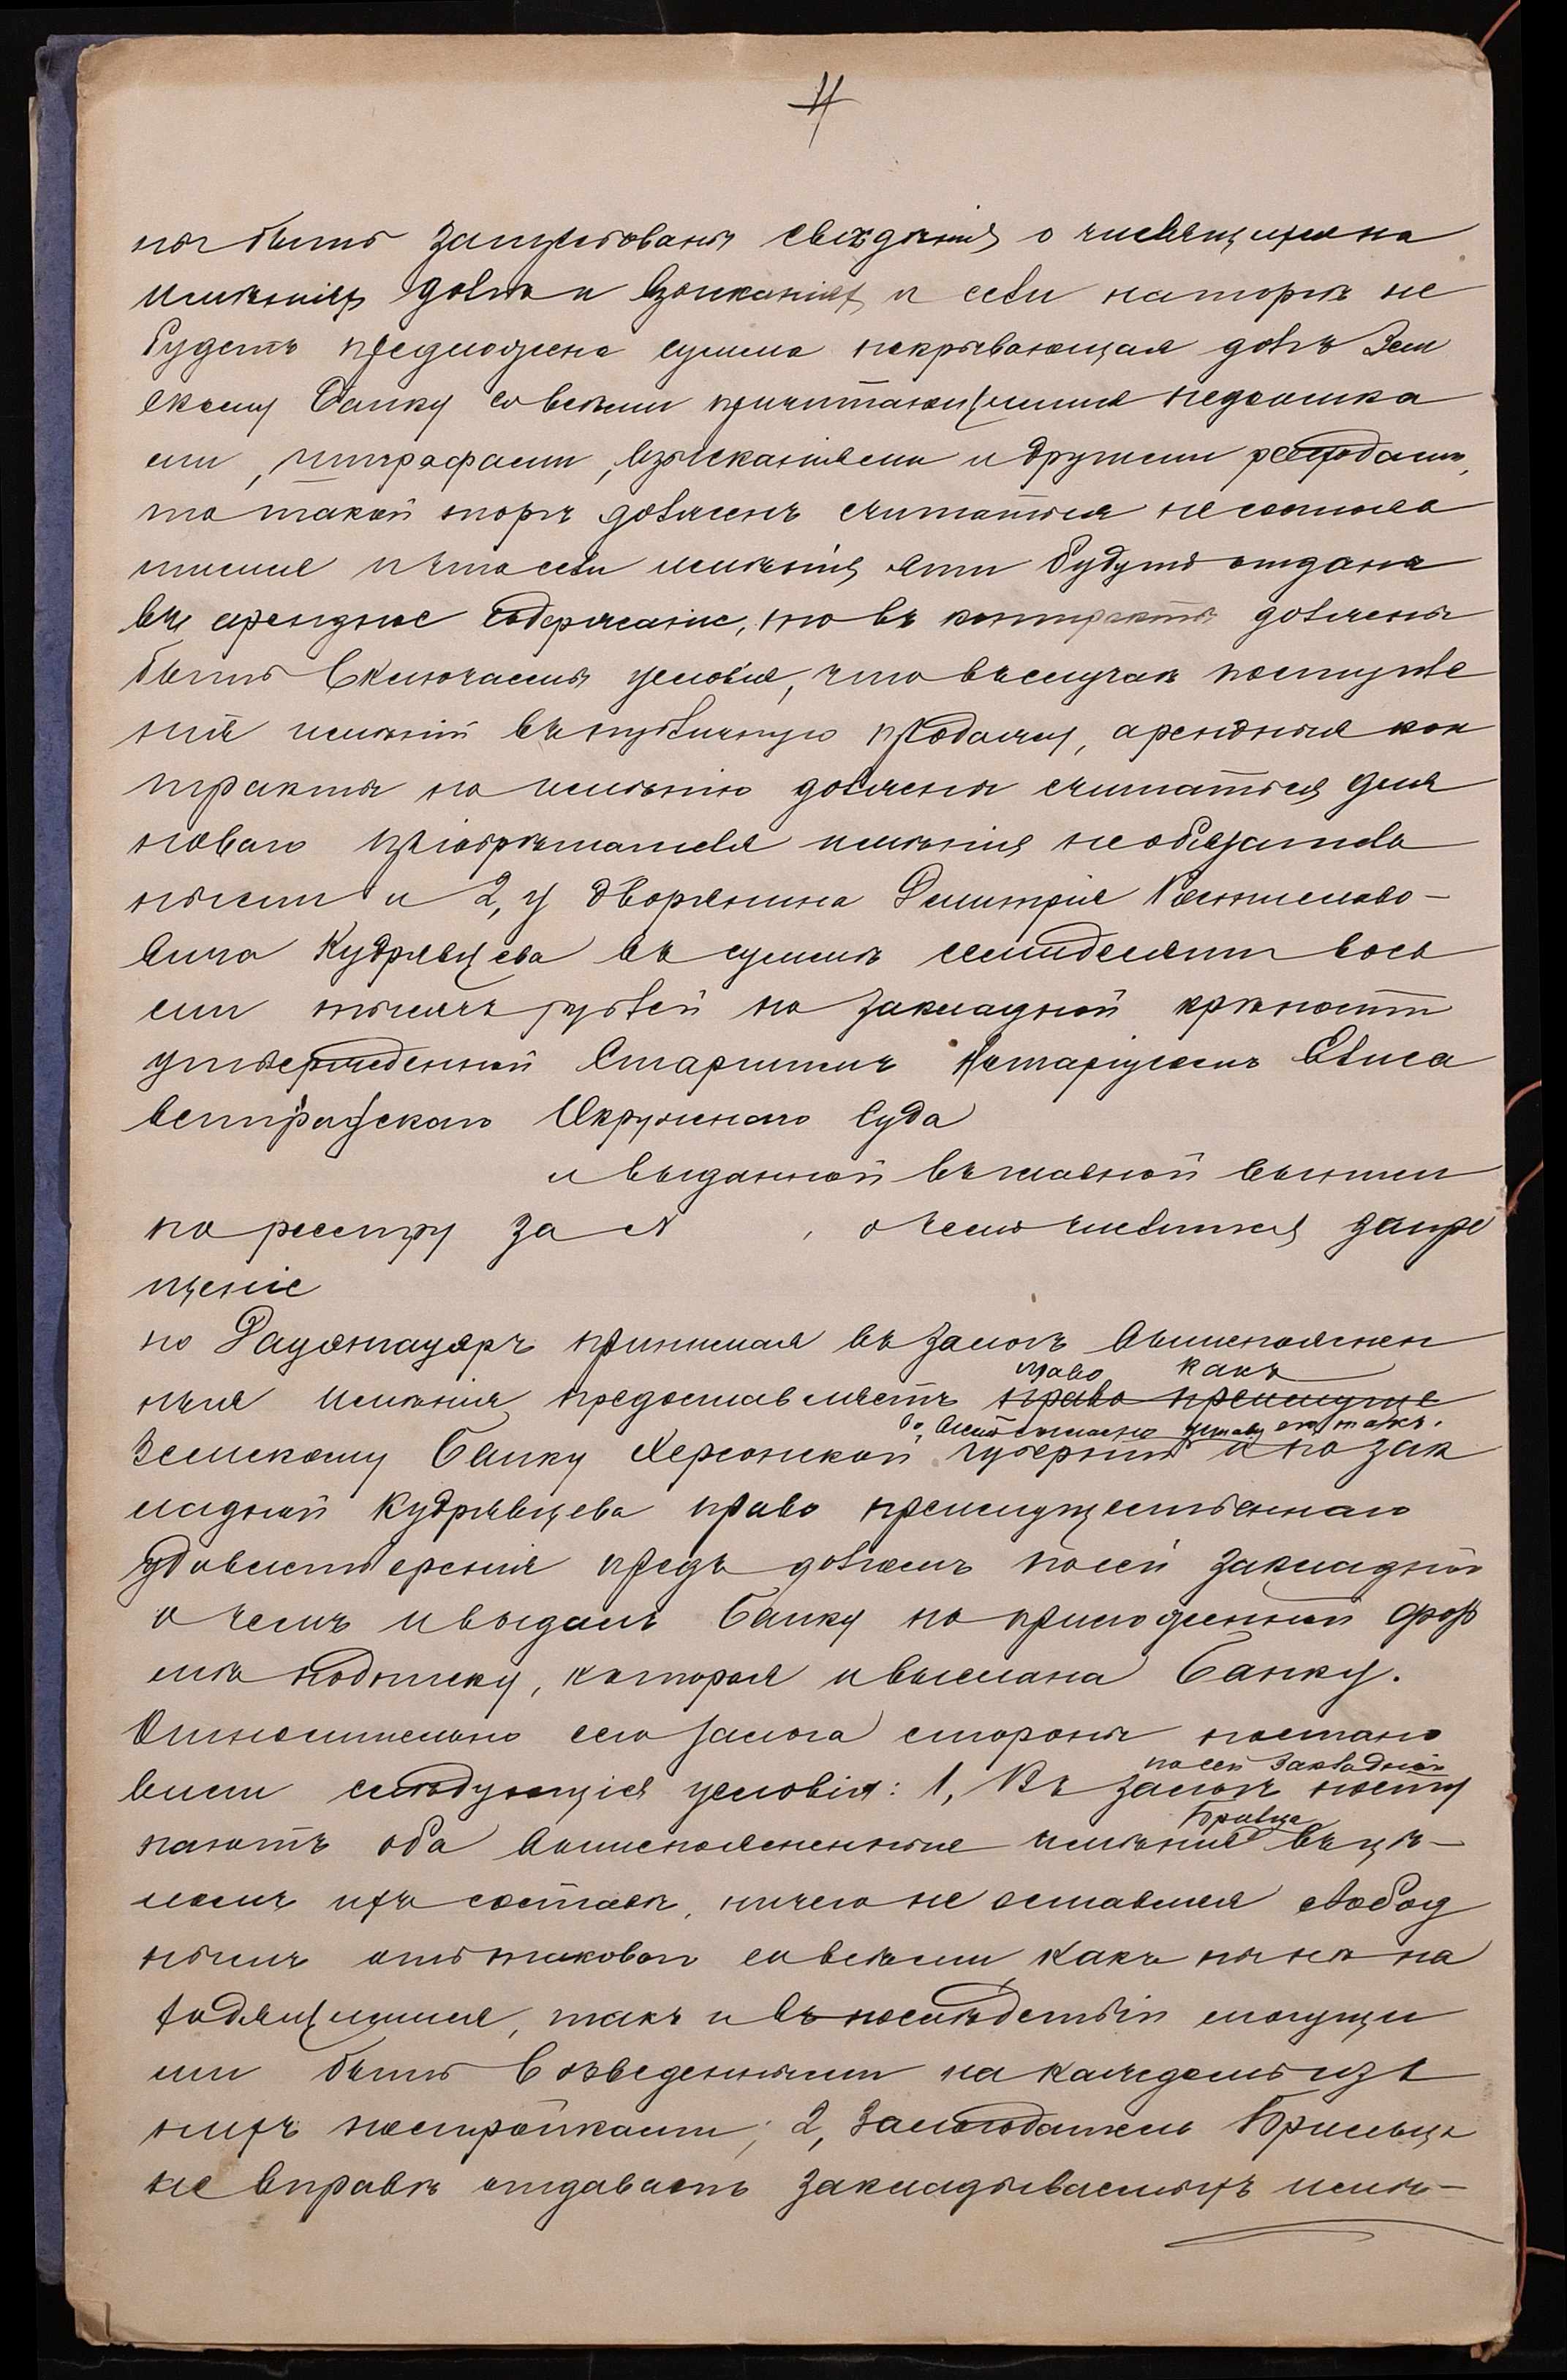 ны быть затребованы свѣдѣнія о числящихся на
имѣніяхъ долги и взысканіях и если на торгѣ не
будетъ предложена сумма покрывающая долгъ Зем
скому Банку со всѣми причитающимися недоимка
ми, штрафами, взысканіями и другими расходами,
то такой торгъ долженъ считаться не состояв
шимся и что если имѣнія эти будутъ отданы
въ арендное содержаніе, то въ контрактѣ должены
быть включаемы условія, что въ случаѣ поступле
нія имѣній въ публичную продажу, арендныя кон
тракты по имѣнію должены считаться для
новаго пріобрѣтателя имѣнія не обязатель
ными и 2, у дворянина Дмитрія Ростиславо-
вича Кудрявцева въ суммѣ семидесяти вось
ми тысячъ рублей по закладной крѣпости
утвержденной Старшимъ Нотаріусомъ Елиса
ветградскаго Окружнаго Суда
и выданной въ главной выписи
по реестру за N , о чемъ числится запре
щеніе
но принимая въ залогъ вышепояснен
ныя имѣнія предоставляетъ право преимуще
право какъ
Земскому Банку Херсонской губерніи и по зак
согласно уставу его такъ.
ладной Кудрявцева право преимущественнаго
удовлетворенія предъ долгомъ по сей закладной
о чемъ и выдалъ Банку по приложенной фор
мѣ подписку, которая и выслана Банку.
Относительно сего залога стороны постано
вили слѣдующія условія: 1, Въ залогъ посту
по сей Закладной
паютъ оба вышепоясненныя имѣнія въ цѣ-
ломъ ихъ составѣ, ничего не оставляя свобод
нымъ отъ таковаго со всѣми какъ нынѣ на
ходящимися, так и въ послѣдствіи могущи
ми быть возведенными на каждомъ изъ
нихъ постройками; 2, Залогодатель
не вправѣ отдавать закладываемыхъ имѣ-